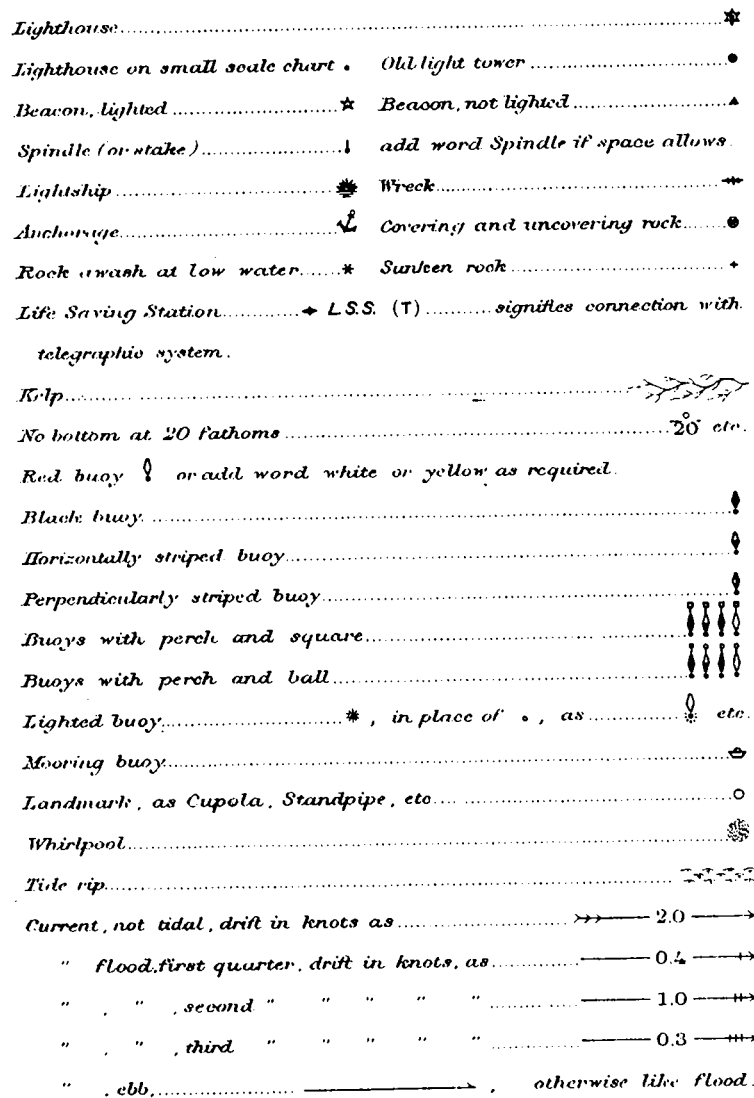 Lighthouse
Lighthouse on small scale chart . Old light tower
Beacon, lighted Beacon, not lighted
Spindle (or stake) add word Spindle if space allows.
Lightship Wreck
Anchorage Covering and uncovering rock
Rock awash at low water Sunken rock
Life Saving Station L.S.S. (T) signifies connection with
telegraphic system.
Kelp
No bottom at 20 fathoms 20 etc.
Red buoy or add word white or yellow as required.
Black buoy
Horizontally striped buoy
Perpendicularly striped buoy
Buoys with perch and square
Buoys with perch and ball
Lighted buoy , in place of , as etc.
Mooring buoy
Landmark, as Cupola, Standpipe, etc
Whirlpool
Tide rip
Current, not tidal, drift in knots as 2.0
" flood, first quarter, drift in knots, as 0.4
" , " , second " " " " " 1.0
" , " , third " " " " " 0.3
" , ebb, , otherwise like flood.